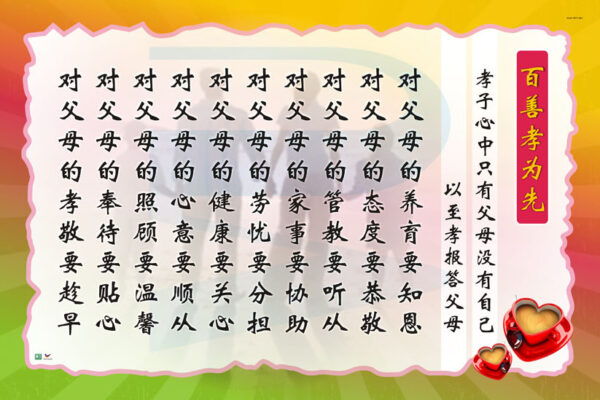 百善孝为先
孝子心中只有父母没有自己
以至孝报答父母
对父母的养育要知恩
对父母的态度要恭敬
对父母的管教要听从
对父母的家事要协助
对父母的劳忧要分担
对父母的健康要关心
对父母的心意要顺从
对父母的照顾要温馨
对父母的奉待要贴心
对父母的孝敬要趁早